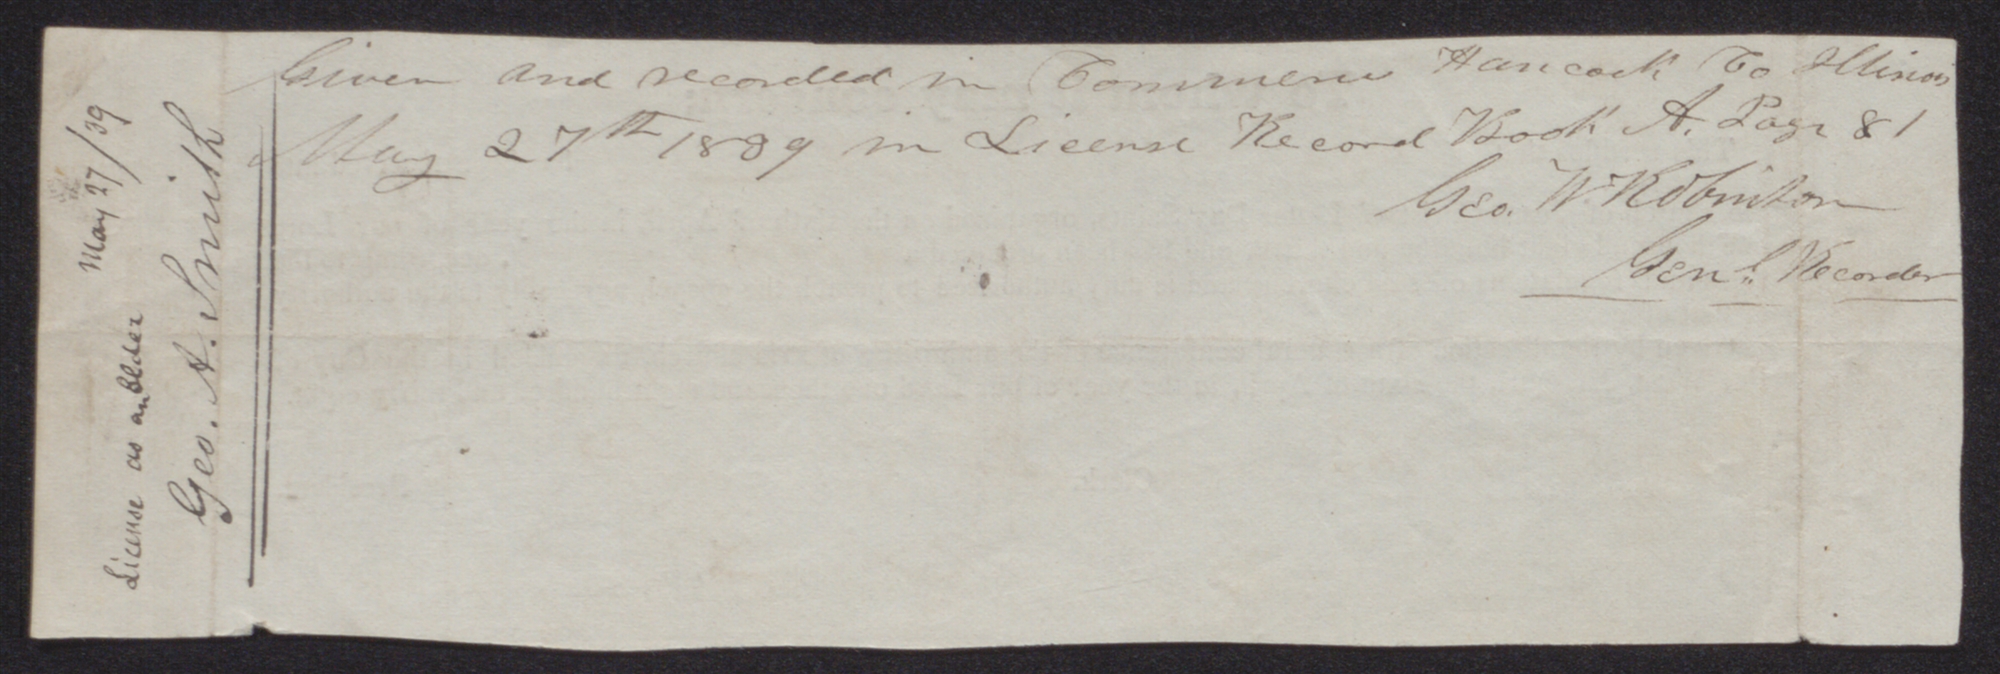 Given and recorded in Commerce Hancock Co Illinois
May 27th 1839 in License Record Book A. Page 81
Geo. W. Robinson
Genl. Recorder
May 27/39
License as an Elder
Geo. A. Smith